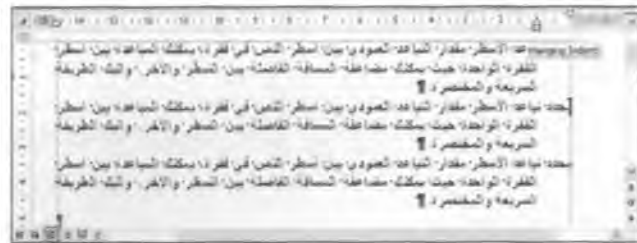 عد الأسطر مقدار التباعد العمودي بين أسطر النص في فقرة، يمكنك المباعدة بين أسطر
Hanging Indent
الفقرة الواحدة حيث يمكنك مضاعفة المسافة الفاصلة بين السطر والآخر. وإليك الطريقة
السريعة والمختصرة. ¶
يحدد تباعد الأسطر مقدار التباعد العمودي بين أسطر النص في فقرة، يمكنك المباعدة بين أسطر
الفقرة الواحدة حيث يمكنك مضاعفة المسافة الفاصلة بين السطر والآخر. وإليك الطريقة
السريعة والمختصرة. ¶
يحدد تباعد الأسطر مقدار التباعد العمودي بين أسطر النص في فقرة، يمكنك المباعدة بين أسطر
الفقرة الواحدة حيث يمكنك مضاعفة المسافة الفاصلة بين السطر والآخر. وإليك الطريقة
السريعة والمختصرة. ¶
¶